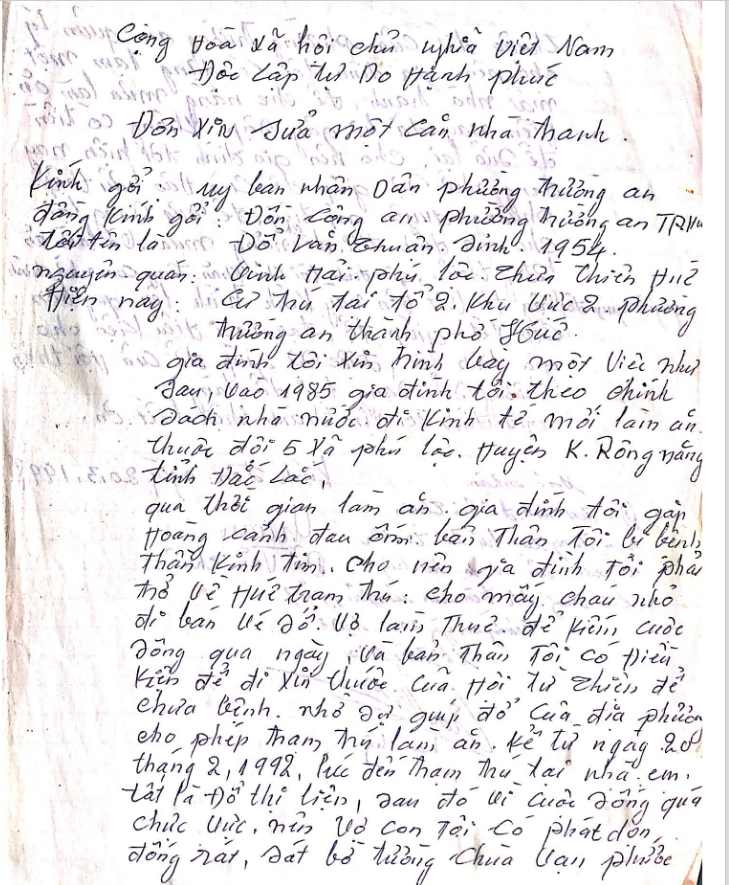 Cộng Hoà Xã hội chủ nghĩa Việt Nam
Độc Lập Tự Do Hạnh phúc
Đơn Xin Sửa một Căn nhà tranh.
Kính gởi: Uỷ ban nhân Dân phường Hương an
đồng Kính gởi: Đồn Công an phường Hương an TP Huế
Tôi tên là Đổ Văn Thuân. Sinh. 1954.
nguyên quán: Vinh Hải. phú lộc. Thừa Thiên Huế
Hiện nay: Cư trú tại tổ 2. Khu vực 2. phường
Hương an thành phố Huế.
gia đình tôi xin trình bày một việc như
sau, vào 1985 gia đình tôi. theo chính
sách nhà nước. đi Kinh tế mới làm ăn.
thuộc đội 5 Xã phú lộc. Huyện K. Rông năng
tỉnh Đắc Lắc,
qua thời gian làm ăn gia đình tôi gặp
Hoàng cảnh đau ốm. bản Thân Tôi bị bệnh
thần Kinh tim. cho nên gia đình Tôi phải
trở về Huế tram trú: cho mấy cháu nhỏ
đi bán vé số. Vợ làm thuê. để kiếm cuộc
sống qua ngày, và bản Thân Tôi có Điều
Kiện để đi xin thuốc của Hội từ Thiện để
chưa bệnh. nhờ sự giúp đở của địa phương
cho phép tham trú làm ăn. Kể từ ngày 20
tháng 2, 1992, lúc đến tham trú tại nhà em.
tất là Đổ thi liện, sau đó vì cuộc sống quá
chức vức. nên vợ con Tôi có phát dọn,
đống rát, sát bờ tường Chùa Vạn phước